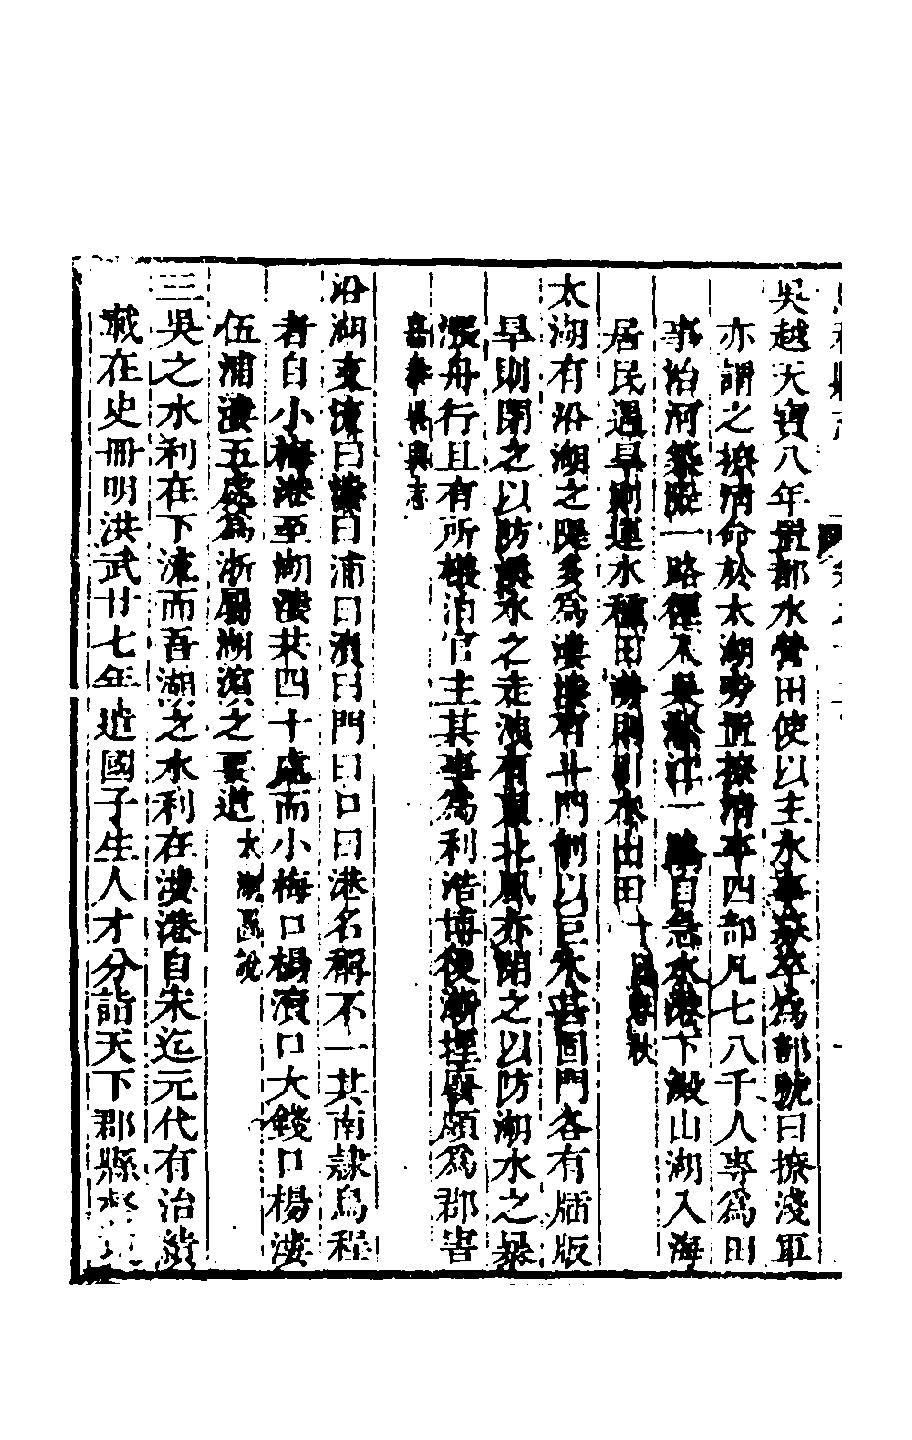 吳越天寶八年置都水營田使以主水事募卒為部號曰撩淺軍
亦謂之撩清命於太湖旁置撩清卒四部凡七八千人專為田
事治河築隄一路徑入吳淞江一路自急水港下澱山湖入海
居民遇旱則運水種田澇則引水出田十國春秋
太湖有沿湖之隄多為溇溇有斗門制以巨木甚固門各有牐版
旱則閉之以防溪水之走洩有東北風亦閉之以防湖水之暴
漲舟行且有所檥泊官主其事為利浩博後漸堙廢頗為郡害
嘉泰吳興志
沿湖支流曰溇曰浦曰瀆曰門曰口曰港名稱不一其南隷烏程
者自小梅港至湖溇共四十處而小梅口楊瀆口大錢口楊溇
伍浦溇五處為浙屬湖濱之要道太湖圖說
三吳之水利在下流而吾湖之水利在溇港自宋迄元代有治績
載在史冊明洪武廿七年遣國子生人才分詣天下郡縣